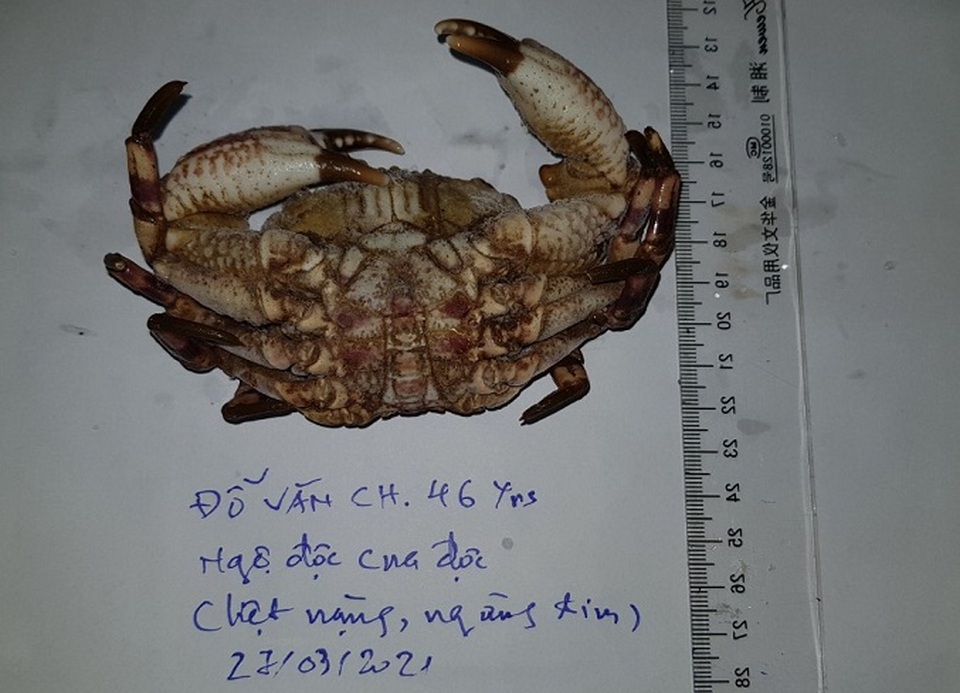 ĐỖ VĂN CH. 46 Yrs
Ngộ độc cua độc
(liệt nặng, ngừng tim)
27/03/2021
12 13 14 15 16 17 18 19 20 21 22 23 24 25 26 27 28
01000128号
MC